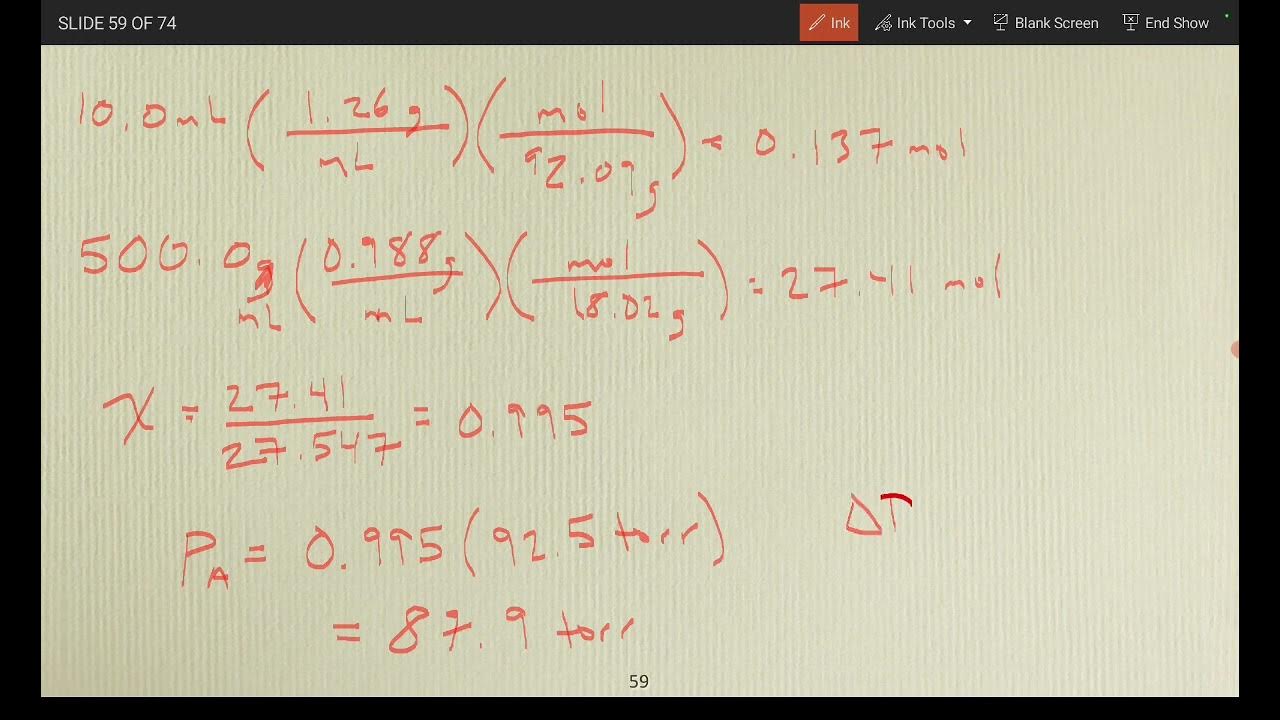 SLIDE 59 OF 74 Ink Ink Tools Blank Screen End Show
10.0 mL (1.26 g / mL) (mol / 92.09 g) = 0.137 mol
500.0 g mL (0.988 g / mL) (mol / 18.02 g) = 27.41 mol
χ = 27.41 / 27.547 = 0.995
P_A = 0.995 (92.5 torr)
ΔP
= 87.9 torr
59